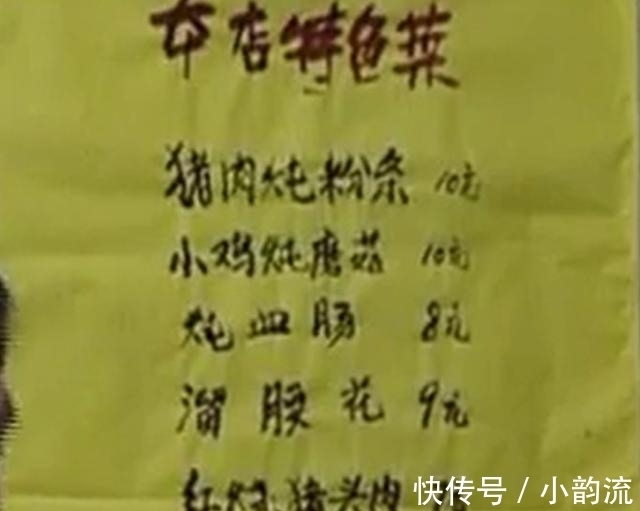 本店特色菜
猪肉炖粉条 10元
小鸡炖磨菇 10元
炖血肠 8元
溜腰花 9元
红烧猪头肉
快传号 / 小韵流